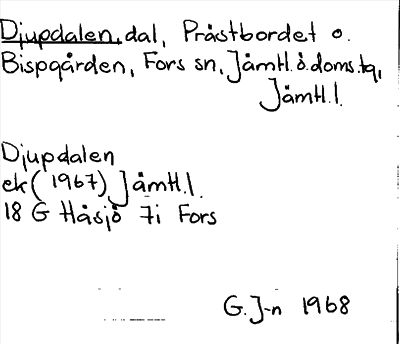 Djupdalen, dal, Prästbordet o.
Bispgården, Fors sn, Jämtl. ö. doms. tg,
Jämtl. l.
Djupdalen
ek (1967) Jämtl. l.
18 G Håsjö 7i Fors
G. J-n 1968